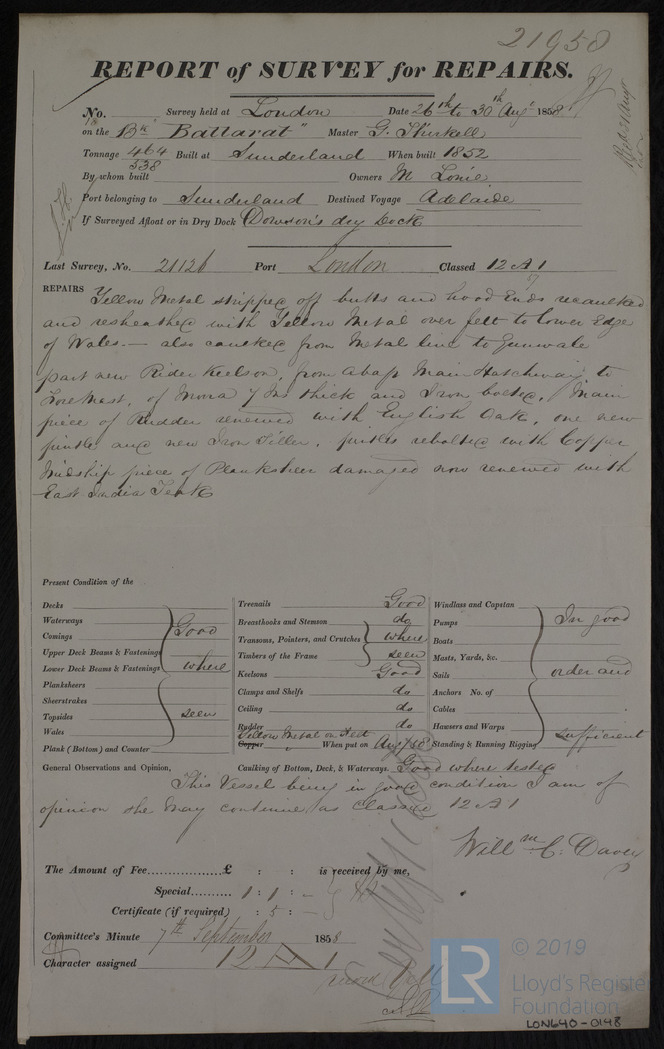 21958
REPORT of SURVEY for REPAIRS.
No. Survey held at London Date 26th to 30th Augt 1858
on the Bk "Ballarat" Master G. Skirkell
Tonnage 464 Built at Sunderland When built 1852
538
By whom built Owners M Lonie
Port belonging to Sunderland Destined Voyage Adelaide
If Surveyed Afloat or in Dry Dock Dowson's dry Dock
Last Survey, No. 21126 Port London Classed 12 A 1
57
REPAIRS Yellow Metal stripped off butts and hood Ends recaulked
and resheathed with Yellow Metal over felt to lower Edge
of Wales.— also caulked from Metal line to Gunwale
part new Rider Keelson, from abaft Main Hatchway to
Foremast, of Mora 7 Ins thick and Iron bolted, Main
piece of Rudder renewed with English Oak, one new
pintle and new Iron Tiller, pintles rebolted with Copper
Midship piece of Planksheer damaged now renewed with
East India Teak
Present Condition of the
Decks
Waterways
Comings
Upper Deck Beams & Fastenings
Lower Deck Beams & Fastenings
Planksheers
Sheerstrakes
Topsides
Wales
Plank (Bottom) and Counter
Good
where
seen
Treenails Good
Breasthooks and Stemson do
Transoms, Pointers, and Crutches where
Timbers of the Frame seen
Keelsons Good
Clamps and Shelfs do
Ceiling do
Rudder do
Yellow Metal on Felt
Copper When put on Aug/58
Windlass and Capstan
Pumps
Boats
Masts, Yards, &c.
Sails
Anchors No. of
Cables
Hawsers and Warps
Standing & Running Rigging
In good
order and
sufficient
General Observations and Opinion, Caulking of Bottom, Deck, & Waterways. Good where tested
This Vessel being in good condition I am of
opinion she may continue as Classed 12 A 1
Willm C. Davey
The Amount of Fee..................£ : : is received by me,
Special......... 1 : 1 : —
Certificate (if required) : 5 : —
Committee's Minute 7th September 1858
Character assigned 12 A 1
© 2019
LR
Lloyd's Register
Foundation
LON640-0148